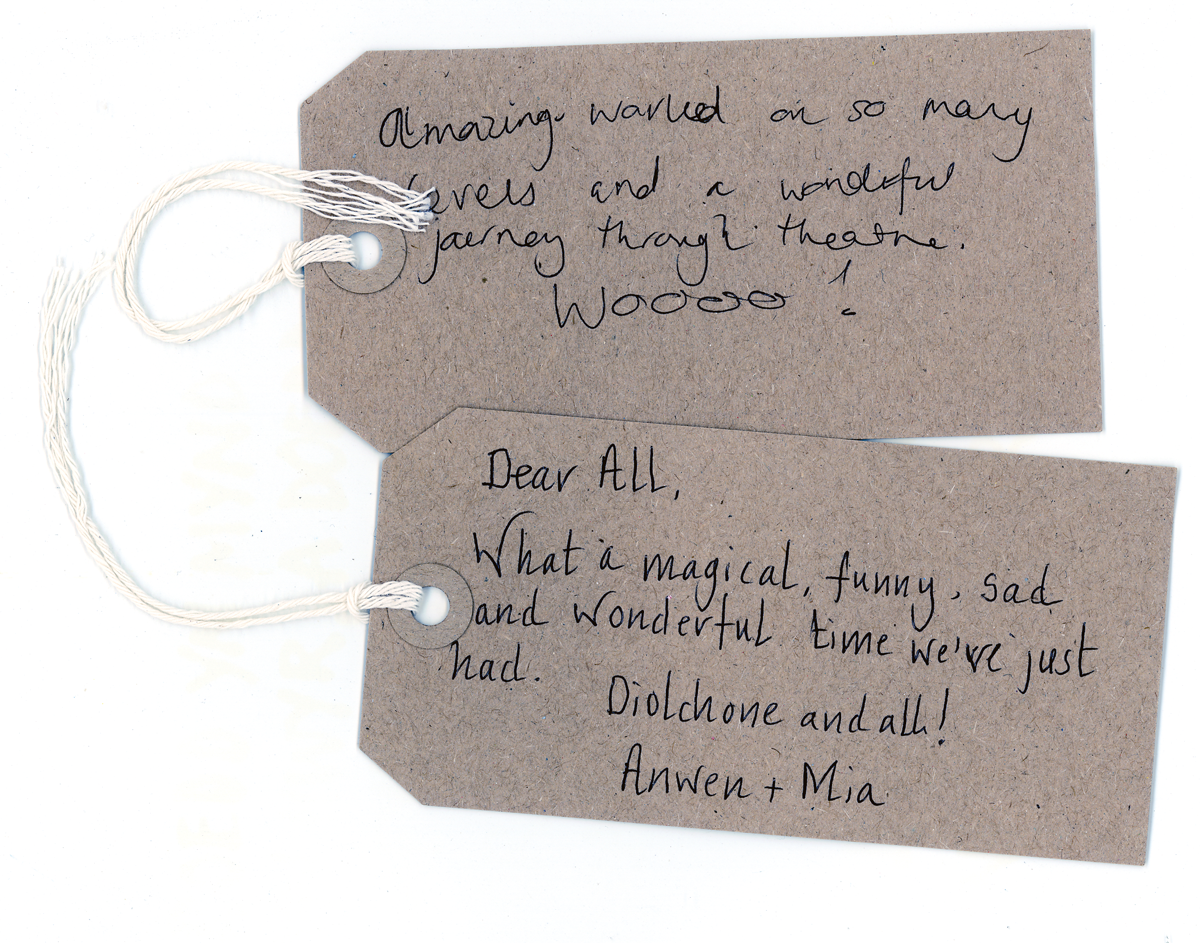 Amazing. worked on so many
levels and a wonderful
journey through theatre.
Woooo !
Dear All,
What a magical, funny, sad
and wonderful time we've just
had.
Diolchone and all!
Anwen + Mia